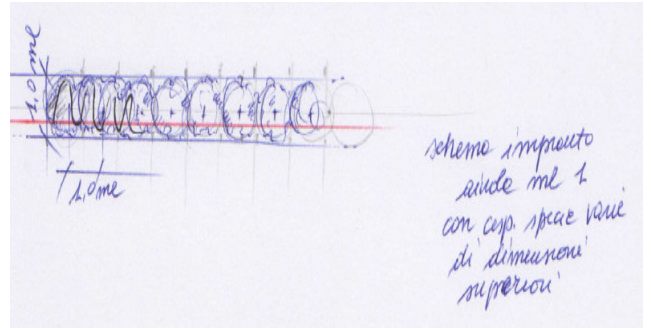 1,0 ml
1,0 ml
schema impianto
aiuola ml 1
con cesp. specie varie
di dimensioni
superiori